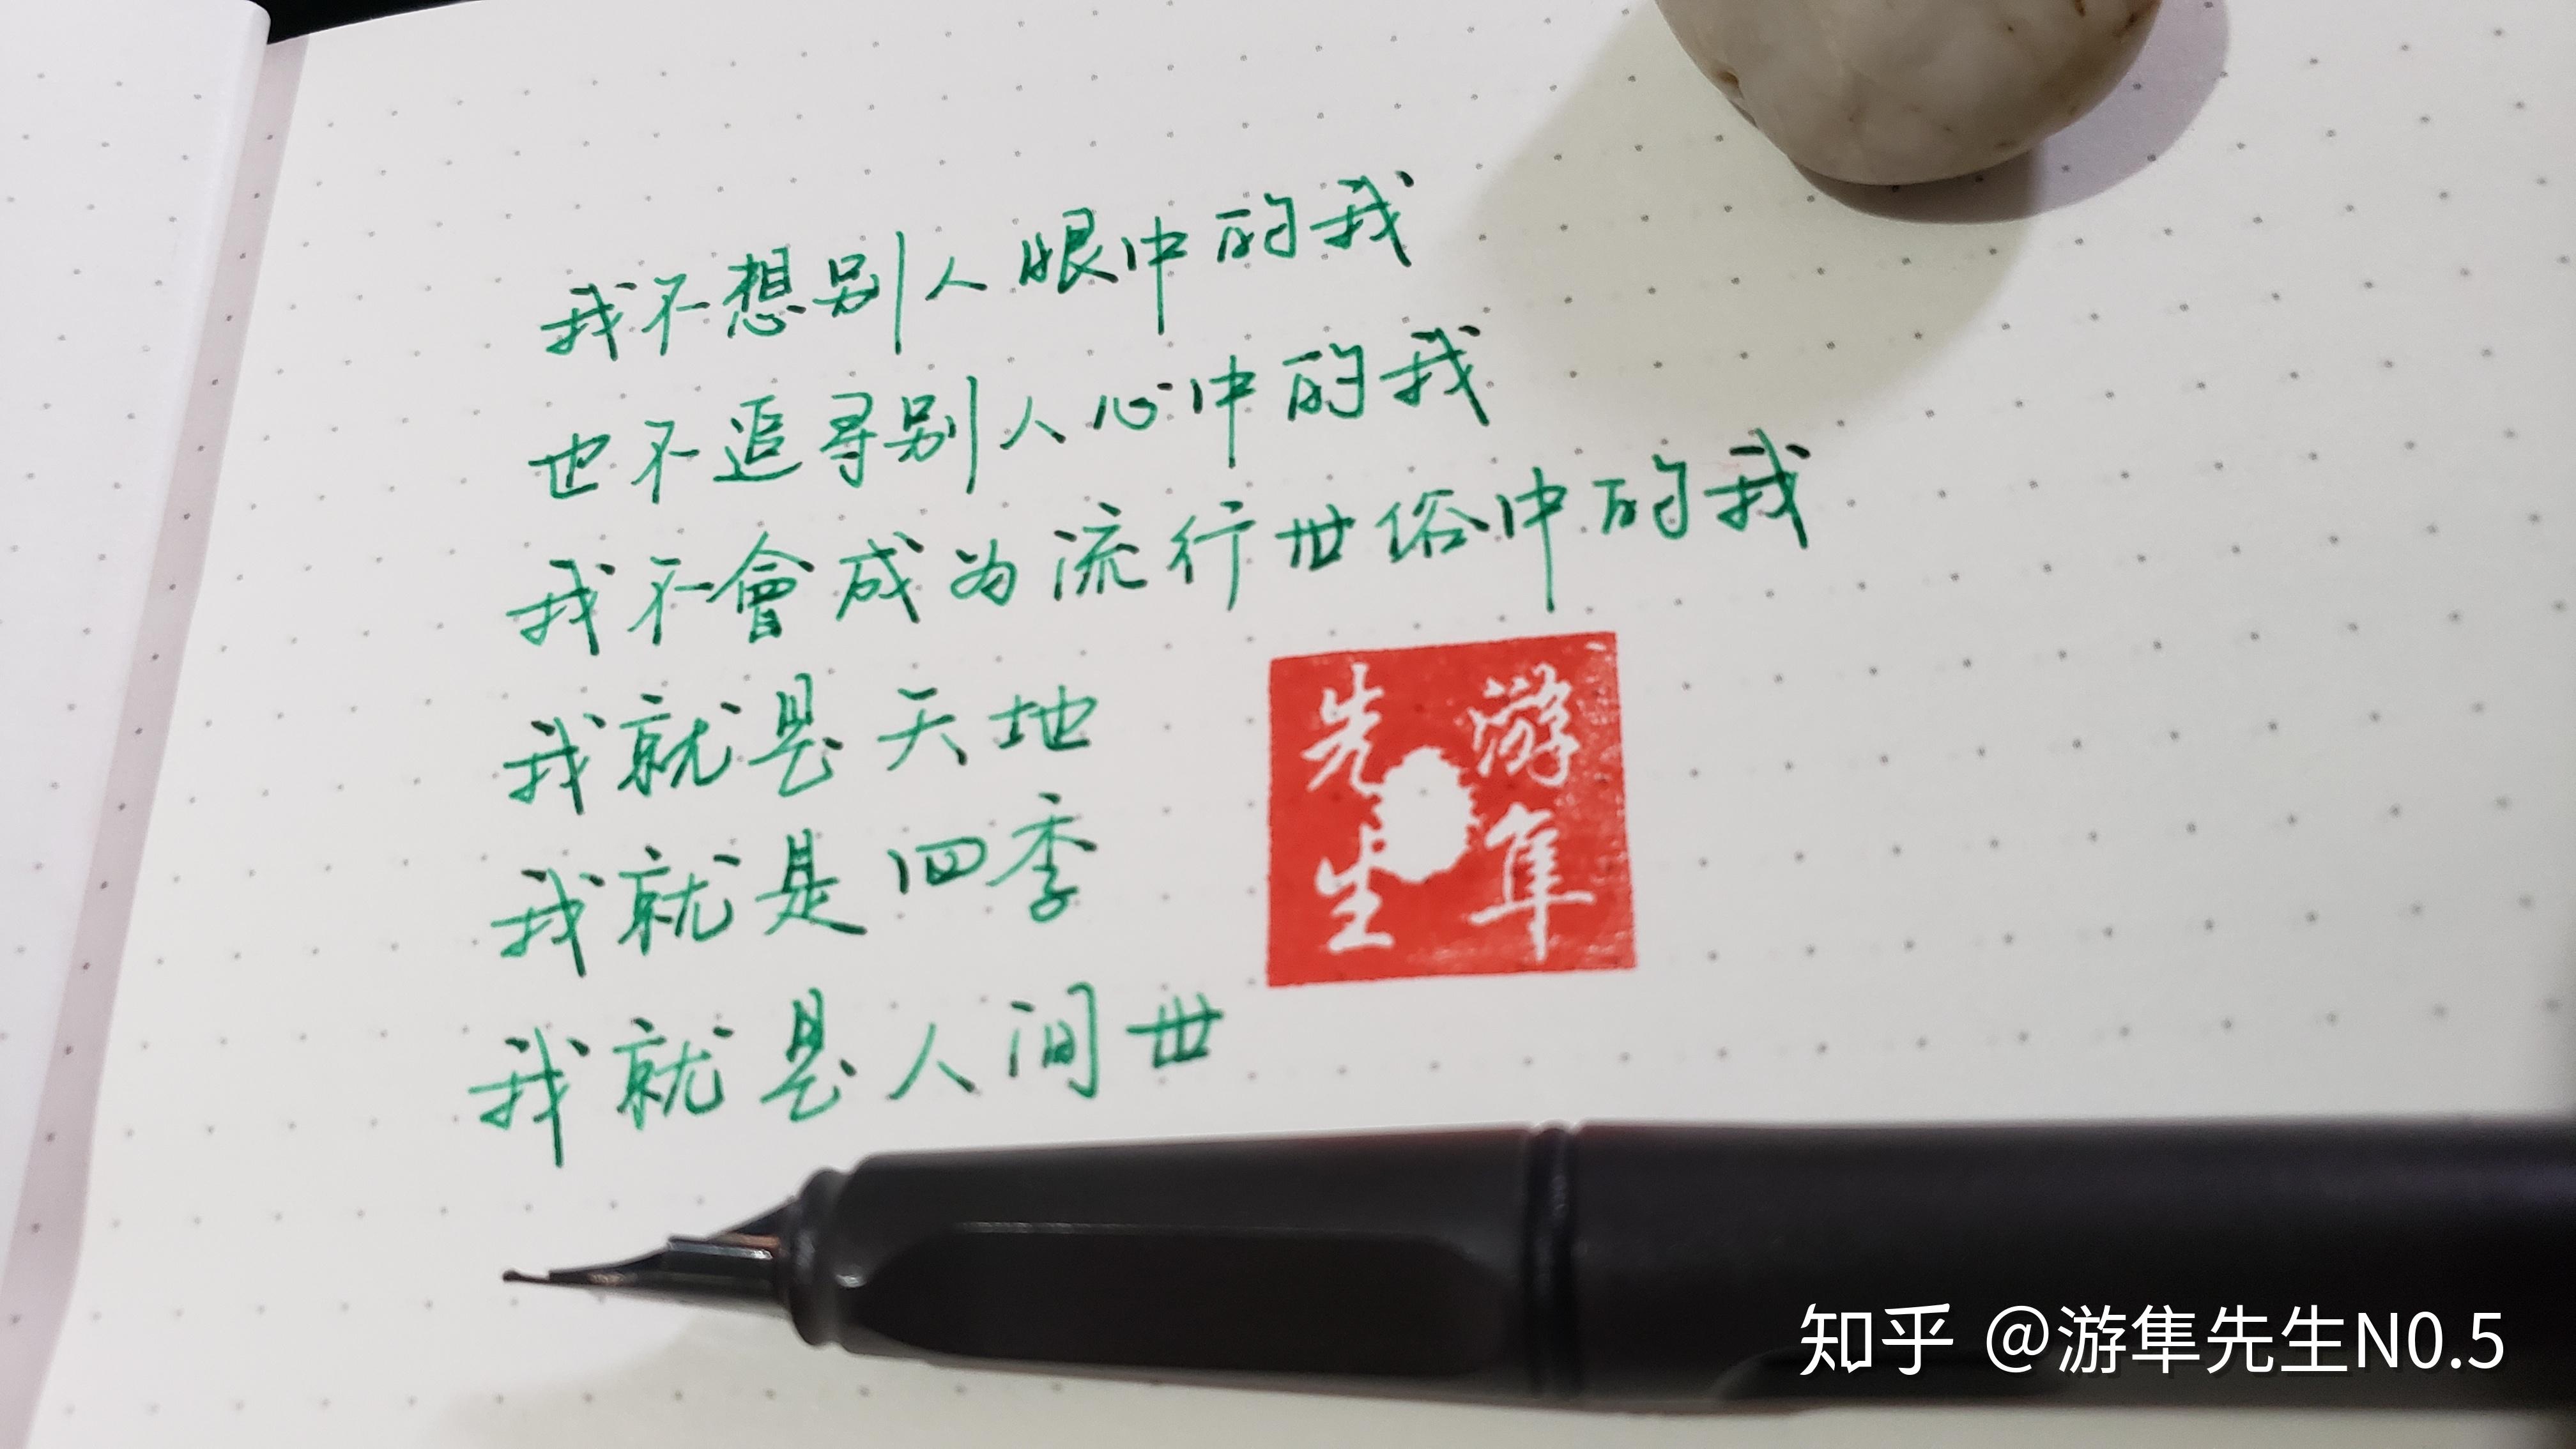 我不想别人眼中的我
也不追寻别人心中的我
我不會成为流行世俗中的我
我就是天地
我就是四季
我就是人间世
游隼
先生
知乎 @游隼先生N0.5